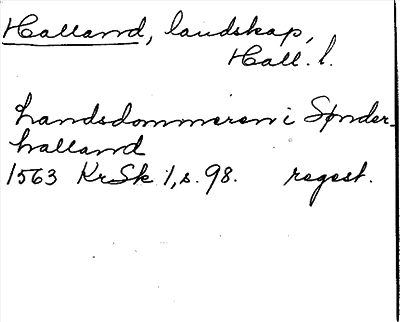 Halland, landskap,
Hall. l.
Landsdommeren i Sønder-
halland
1563 KrSk 1, s. 98. regest.